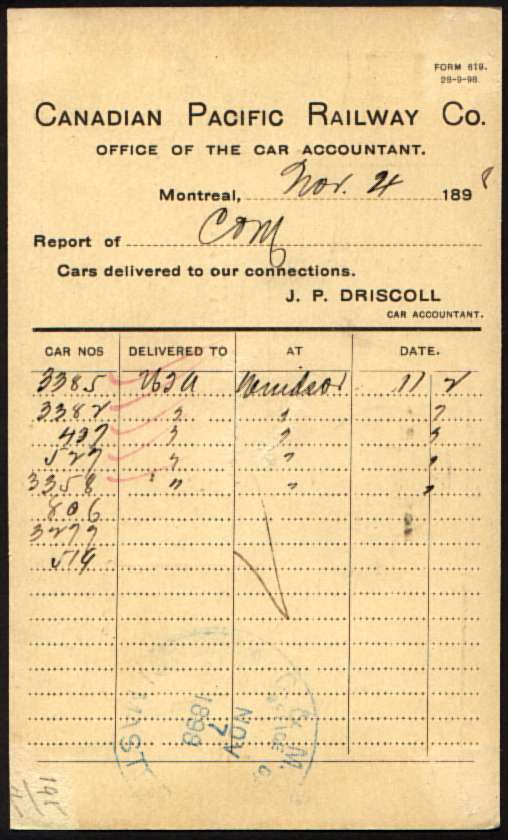 FORM 619.
28-9-98.
CANADIAN PACIFIC RAILWAY CO.
OFFICE OF THE CAR ACCOUNTANT.
Montreal, Nov. 4 1898
Report of C&M
Cars delivered to our connections.
J. P. DRISCOLL
CAR ACCOUNTANT.
CAR NOS DELIVERED TO AT DATE.
3385 Windsor 11 2
3382 " " "
427 " " "
527 " " "
3358 " " "
806
3277
519
NOV
7
1898